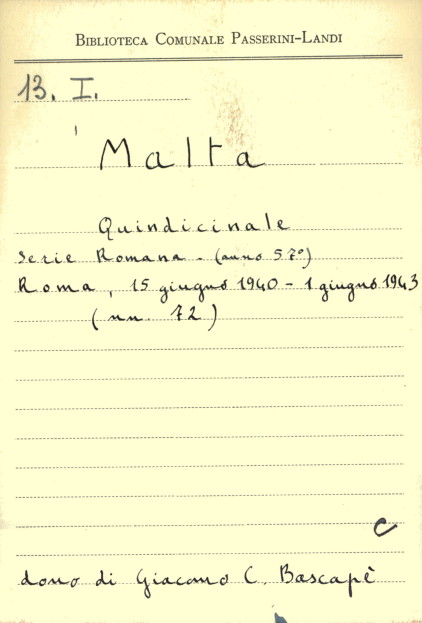 BIBLIOTECA COMUNALE PASSERINI-LANDI
13. I.
Malta
Quindicinale
Serie Romana - (anno 57º)
Roma, 15 giugno 1940 - 1 giugno 1943
(nn. 72)
C
dono di Giacomo C. Bascapè